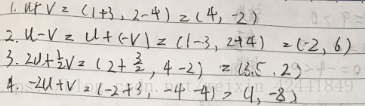 1. u+v = (1+3, 2-4) = (4, -2)
2. u-v = u+(-v) = (1-3, 2+4) = (-2, 6)
3. 2u+½v = (2+3/2, 4-2) = (3.5, 2)
4. -2u+v = (-2+3, -4-4) = (1, -8)